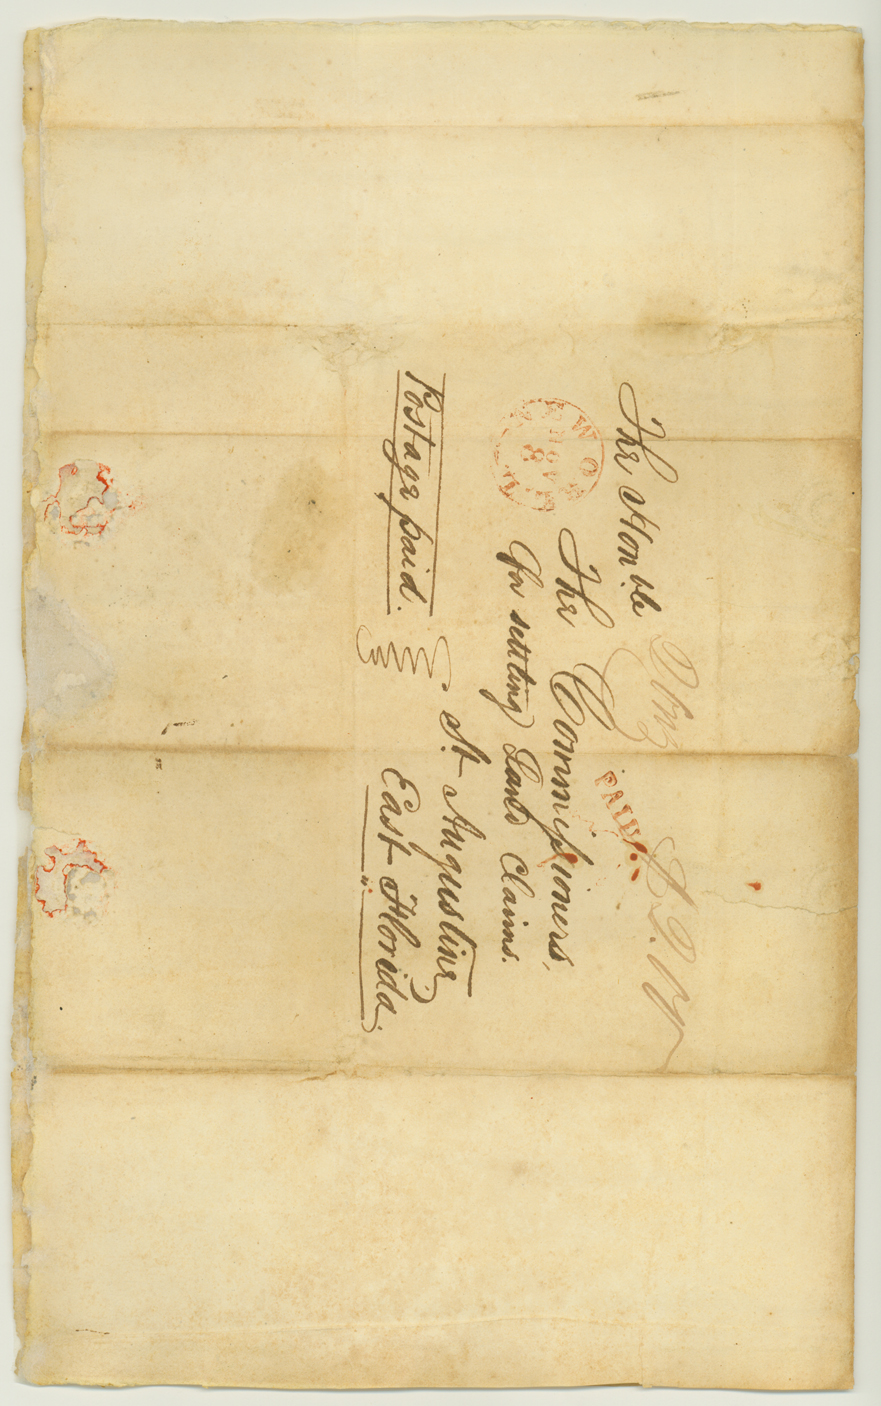 The Hon.ble
The Commissioners,
for settling Land Claims.
St. Augustine
East Florida.
Postage paid.
PAID
NEW YORK
NOV
8